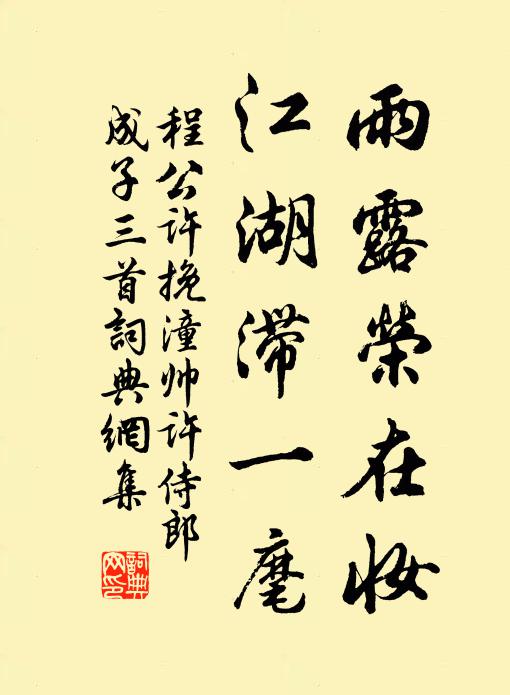 雨露榮在妝
江湖滯一麾
程公许挽潼帅许侍郎
成子三首詞典網集
詞典網印